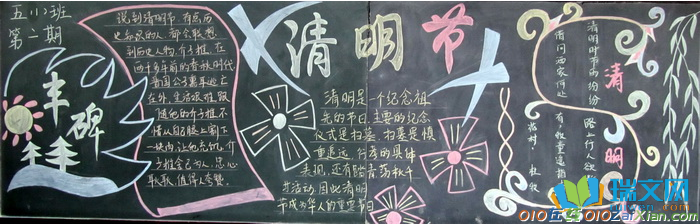 五(2)班
第二期
丰碑
说到清明节,有点历
史知识的人,都会联想
到历史人物介子推。在
两千多年前的春秋时代
晋国公子重耳逃亡
在外,生活艰难,跟
随他的介子推不
惜从自己腿上割下
一块肉让他充饥,介
子推舍己为人,忠心
耿耿,值得人学赞。
清明节
清明是一个纪念祖
先的节日,主要的纪念
仪式是扫墓,扫墓是慎
重追远、行孝的具体
表现,还有踏青荡秋千
等活动,因此清明
节成为华人的重要节日
清明
清明时节雨纷纷
路上行人欲
借问酒家何处
有牧童遥指
杏村
杜牧
瑞文网